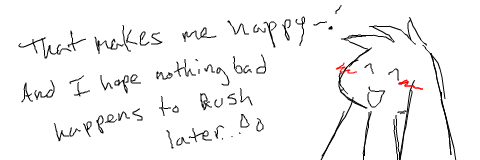 That makes me happy~!
And I hope nothing bad
happens to Rush
later...